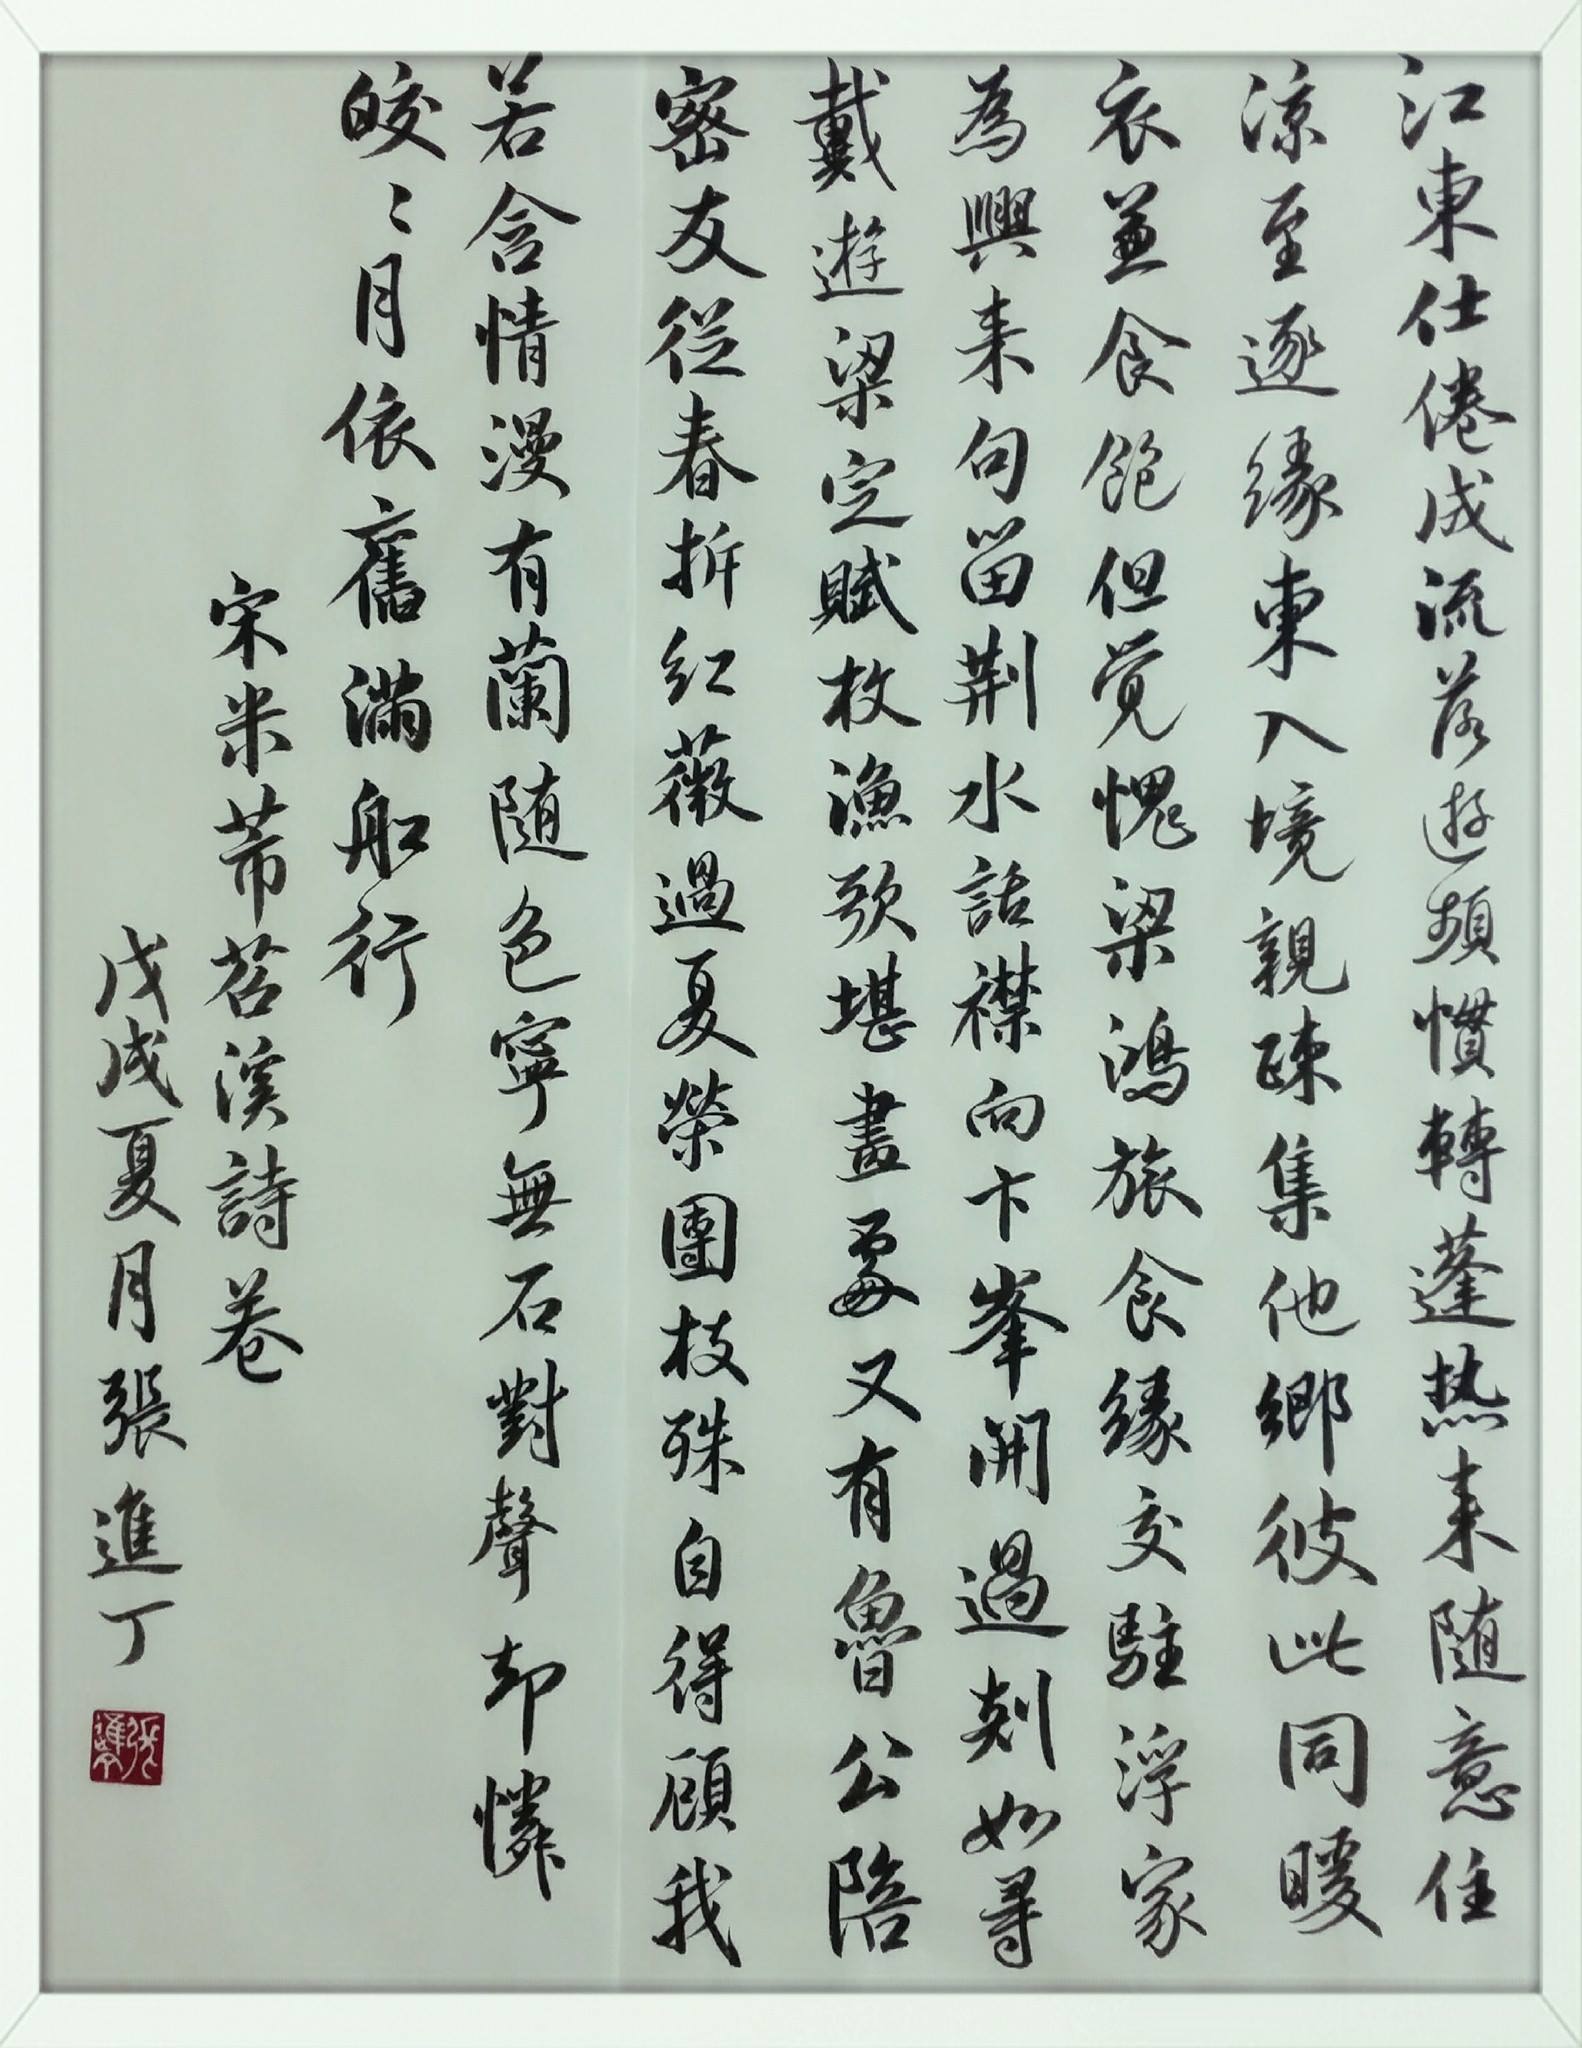 江東仕倦成流落遊頻慣轉蓬热来随意住
涼至逐緣東入境親疎集他鄉彼此同暖
衣兼食飽但觉愧梁鴻旅食緣交駐浮家
為興来句留荆水話襟向卞峯開過剡如尋
戴遊梁定賦枚漁歌堪畫處又有魯公陪
密友從春拆紅薇過夏榮團枝殊自得顧我
若含情漫有蘭随色寧無石對聲却憐
皎〻月依舊滿船行
宋米芾苕溪詩卷
戊戌夏月張進丁